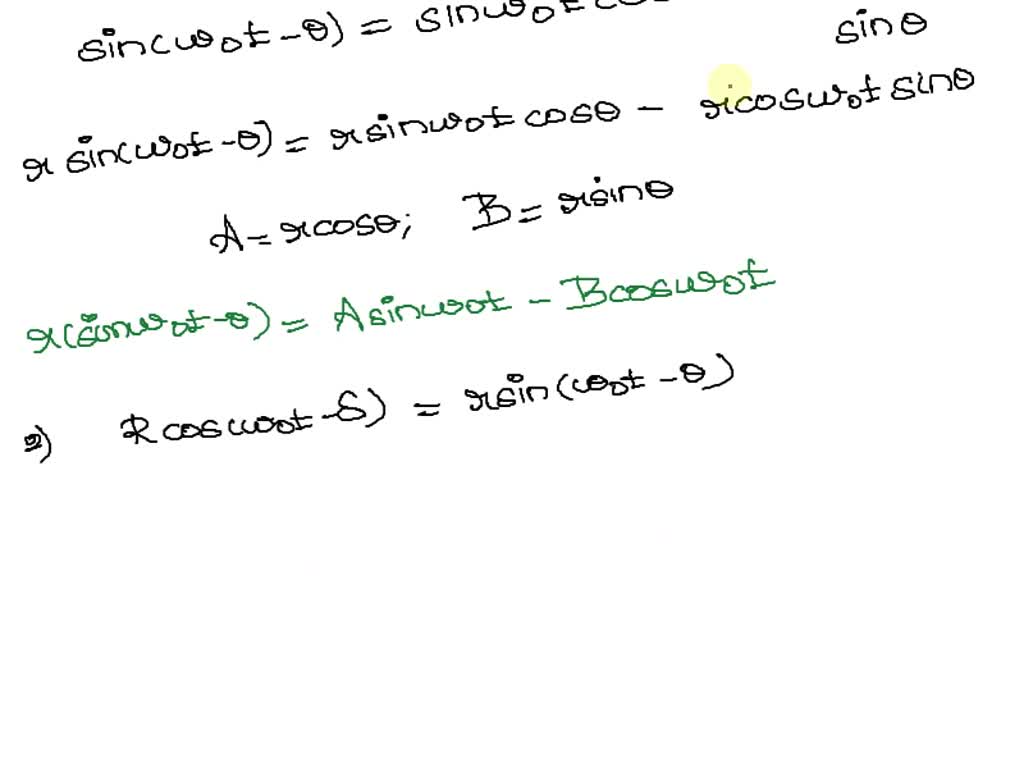 sin(ω₀t - θ) = sinω₀t
sinθ
r sin(ω₀t - θ) = r sinω₀t cosθ - r cosω₀t sinθ
A = r cosθ; B = r sinθ
r(sinω₀t - θ) = A sinω₀t - B cosω₀t
2) R cosω₀t - δ) = r sin(ω₀t - θ)